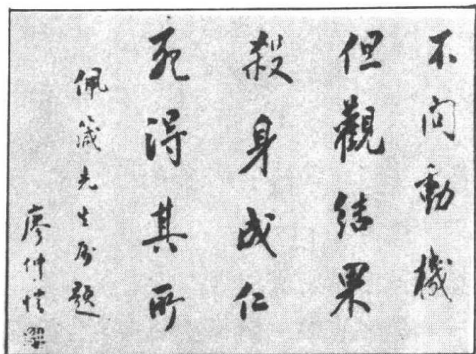 不问動機
但觀結果
殺身成仁
死得其所
佩箴先生属題
廖仲愷